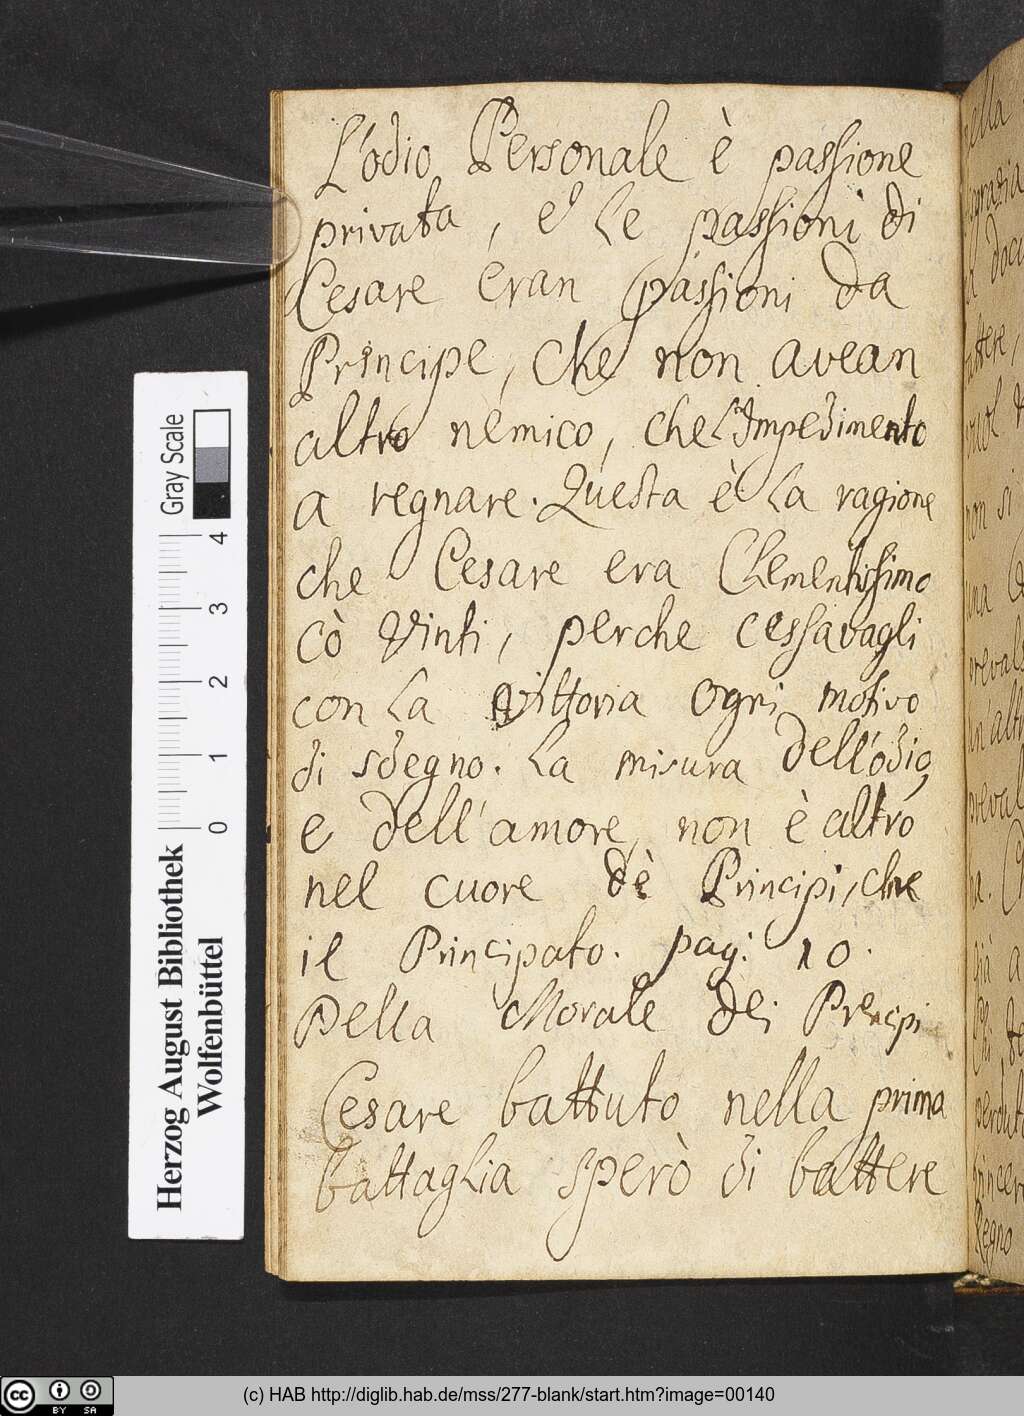 L'odio Personale è passione
privata, e le passioni di
Cesare eran passioni da
Principe, che non avean
altro nemico, che l'Impedimento
a regnare. Questa è la ragione
che Cesare era Clementissimo
cò Vinti, perche cessavagli
con la Vittoria ogni motivo
di sdegno. La misura dell'odio,
e dell'amore, non è altro
nel cuore dè Principi, che
il Principato. pag: 10.
Della Morale dei Precipi
Cesare battuto nella prima
battaglia sperò di battere
Gray Scale
0 1 2 3 4
Herzog August Bibliothek
Wolfenbüttel
cc BY SA
(c) HAB http://diglib.hab.de/mss/277-blank/start.htm?image=00140